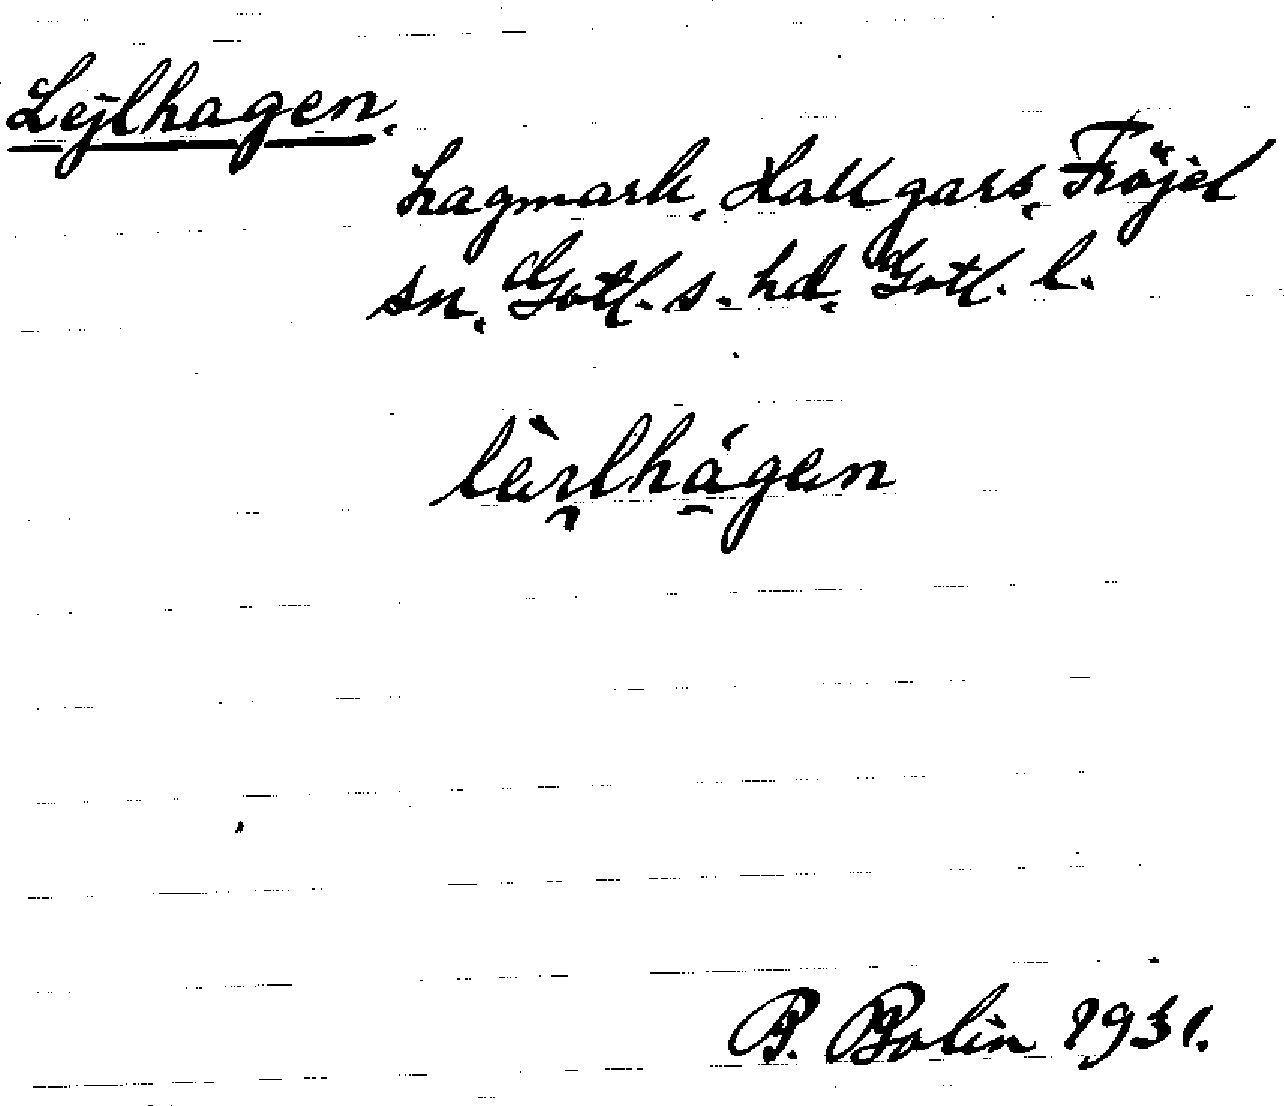 Lejlhagen.
hagmark, Hallgars, Fröjel
sn, Gotl. s. hd, Gotl. l.
B. Bolin 1931.